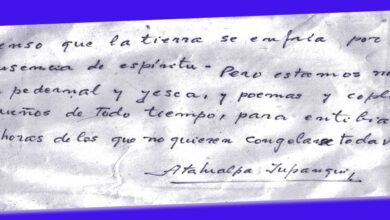 enso que la tierra se enfría por
usencia de espíritu - Pero estamos no
pedernal y yesca, y poemas y copl
ueños de todo tiempo, para entibia
horas de los que no quieren congelarse todav
Atahualpa Yupanqui